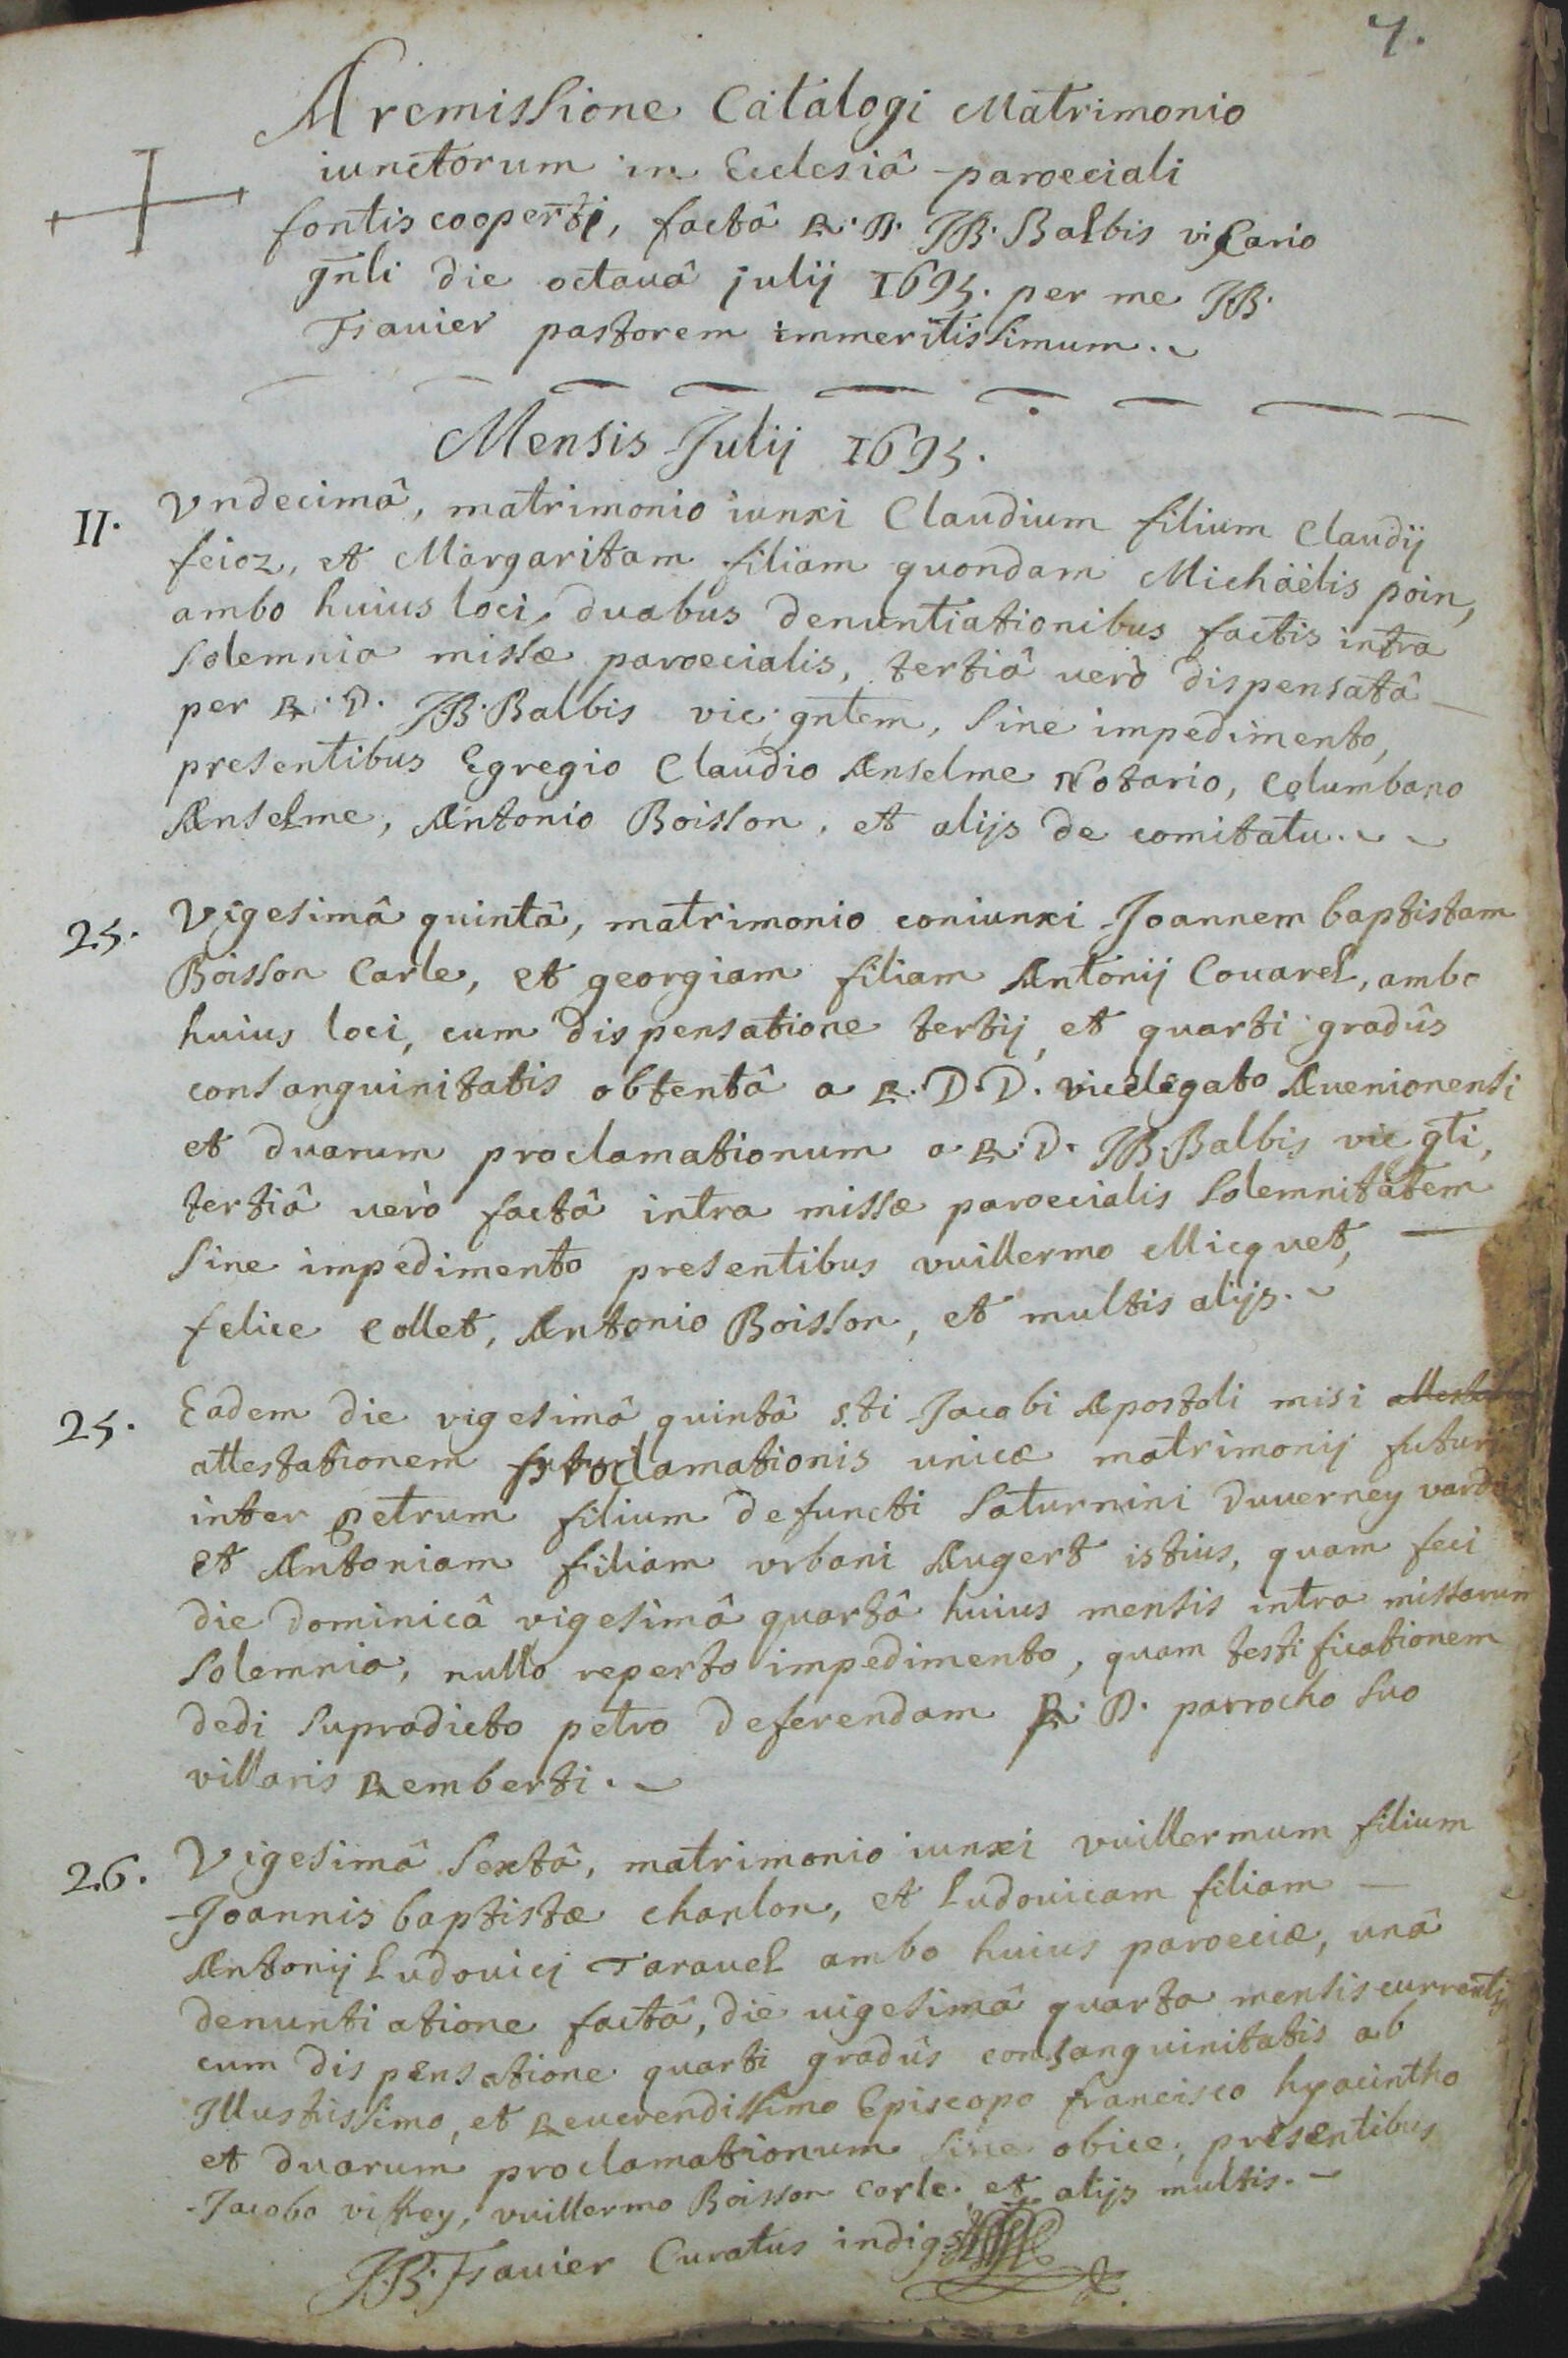 4.
A remissione Catalogi Matrimonio
iunctorum in Ecclesiâ paroeciali
fontiscooperti, factâ R. D. JB. Balbis vicario
gñli die octauâ julij 1695. per me JB.
Tsauier pastorem immeritissimum.
Mensis Julij 1695.
11. Vndecimâ, matrimonio iunxi Claudium filium Claudij
feioz, et Margaritam filiam quondam Michäelis poin,
ambo huius loci, duabus denuntiationibus factis intra
solemnia missæ paroecialis, tertiâ uerò dispensatâ
per R. D. JB. Balbis vic. gntem, sine impedimento,
presentibus Egregio Claudio Anselme Notario, Columbano
Anselme, Antonio Boisson, et alijs de comitatu.
25. Vigesimâ quintâ, matrimonio coniunxi Joannem baptistam
Boisson Carle, et georgiam filiam Antonij Couarel, ambo
huius loci, cum dispensatione tertij, et quarti gradûs
consanguinitatis obtentâ a R. D. D. vicelegato Auenionensi
et duarum proclamationum a R. D. JB. Balbis vic g̃ti,
tertiâ uerò factâ intra missæ paroecialis solemnitatem
sine impedimento presentibus vuillermo Micquet,
felice Collet, Antonio Boisson, et multis alijs.
25. Eadem die vigesimâ quintâ s.ti Jacobi Apostoli misi
attestationem proclamationis unicæ matrimonij futuri
inter petrum filium defuncti Saturnini Duuerney
et Antoniam filiam vrbani Augert istius, quam feci
die dominicâ vigesimâ quartâ huius mensis intra missarum
solemnia, nullo reperto impedimento, quam testificationem
dedi supradicto petro deferendam R. D. parrocho suo
villaris Remberti.
26. Vigesimâ sextâ, matrimonio iunxi vuillermum filium
Joannis baptistæ charlon, et Ludouicam filiam
Antonij Ludouici Tarauel ambo huius paroeciæ, unâ
denuntiatione factâ, die uigesimâ quarta mensis currentis
cum dispensatione quarti gradûs consanguinitatis ab
Illustrissimo, et Reuerendissimo Episcopo francisco hyacintho
et duarum proclamationum sine obice, presentibus
Jacobo viffrey, vuillermo Boisson carle et alijs multis.
J.B. Tsauier Curatus indigs